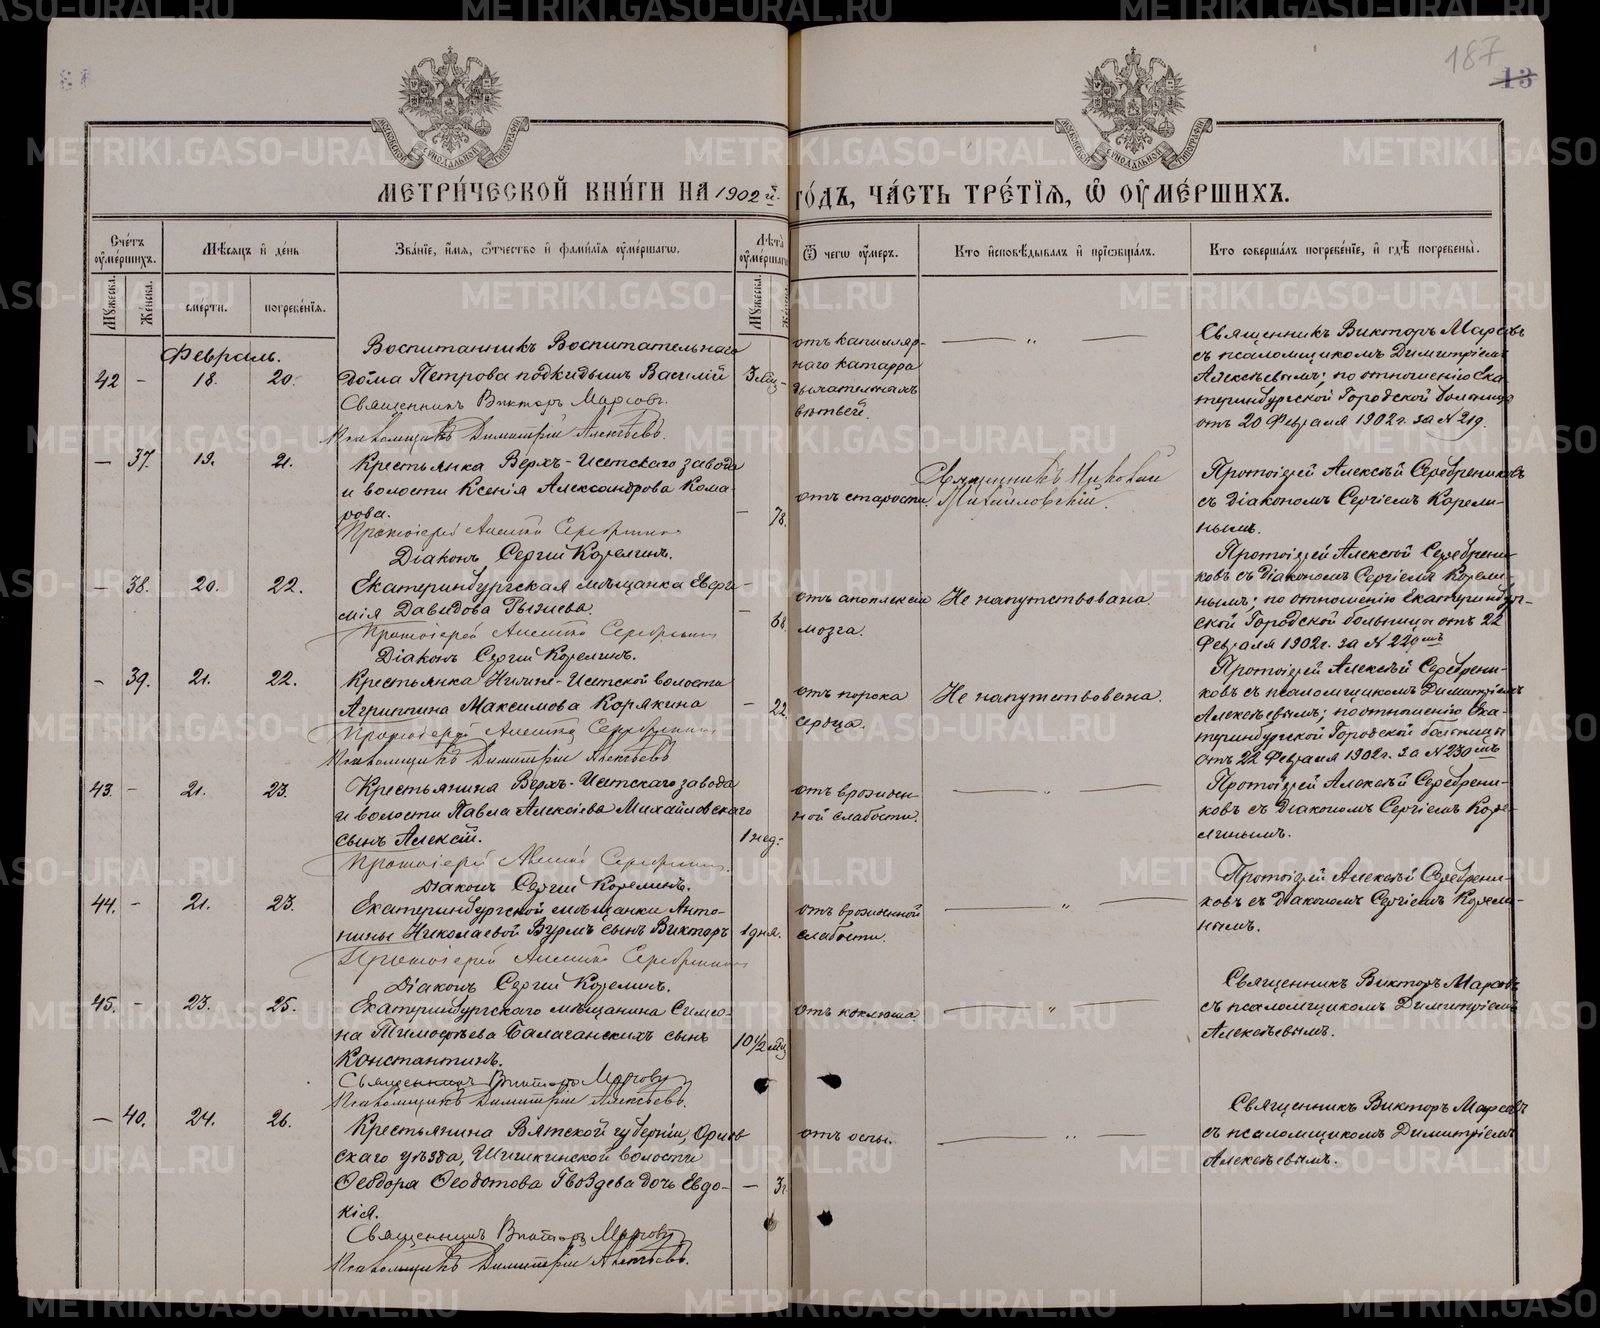 187
13
МОСКОВСКОЙ СѴНОДАЛЬНОЙ ТИПОГРАФІИ
МОСКОВСКОЙ СѴНОДАЛЬНОЙ ТИПОГРАФІИ
МЕТРИ́ЧЕСКОЙ КНИ́ГИ НА 1902й. ГО́ДЪ, ЧА́СТЬ ТРЕ́ТІЯ, Ѿ ОУМЕ́РШИХЪ.
Сче́тъ оумершихъ.
Мꙋжеска.
Же́нска.
Мѣсяцъ и день
сме́рти.
погребе́нїя.
Зва́нїе, и́мя, ѻ́тчество и фами́лїя оуме́ршагѡ.
Лѣта оуме́ршагѡ
Мꙋжеска.
Же́нска.
Ѿ чегѡ оу́меръ.
Кто исповѣ́дывалъ и прїѡбща́лъ.
Кто соверша́лъ погребе́нїе, и гдѣ погребены̀.
Февраль.
42 - 18. 20.
Воспитанникъ Воспитательнаго
дома Петрова подкидышъ Василій
Священникъ Викторъ Марсовъ.
Псаломщикъ Димитрій Алексѣевъ.
3 мѣс -
отъ капилляр-
наго катарра
дыхательныхъ
вѣтвей.
— „ —
Священникъ Викторъ Марсовъ
съ псаломщикомъ Димитріемъ
Алексѣевымъ; по отношенію Ека-
теринбургской Городской больницы
отъ 20 Февраля 1902 г. за № 219.
— 37. 19. 21.
Крестьянка Верхъ-Исетскаго завода
и волости Ксенія Александрова Кома-
рова.
Протоіерей Алексѣй Серебренниковъ
Діаконъ Сергій Корелинъ.
— 78.
отъ старости.
Священникъ Николай
Михайловскій.
Протоіерей Алексѣй Серебрениковъ
съ діакономъ Сергіемъ Корели-
нымъ.
— 38. 20. 22.
Екатеринбургская мѣщанка Евфи-
мія Давидова
Протоіерей Алексѣй Серебренниковъ
Діаконъ Сергій Корелинъ.
— 68.
отъ апоплексіи
мозга.
Не напутствована.
Протоіерей Алексѣй Серебрени-
ковъ съ діакономъ Сергіемъ Корели-
нымъ; по отношенію Екатеринбург-
ской Городской больницы отъ 22
Февраля 1902 г. за № 229мъ
- 39. 21. 22.
Крестьянка Нижне-Исетской волости
Агриппина Максимова Корякина
Протоіерей Алексѣй Серебренниковъ
Псаломщикъ Димитрій Алексѣевъ
— 22.
отъ порока
сердца.
Не напутствована.
Протоіерей Алексѣй Серебрени-
ковъ съ псаломщикомъ Димитріемъ
Алексѣевымъ; по отношенію Ека-
теринбургской Городской больницы
отъ 22 Февраля 1902 г. за № 230мъ
43. - 21. 23.
Крестьянина Верхъ-Исетскаго завода
и волости Павла Алексѣева Михайловскаго
сынъ Алексѣй.
Протоіерей Алексѣй Серебренниковъ.
Діаконъ Сергій Корелинъ.
1 нед.
отъ врожден-
ной слабости.
— „ —
Протоіерей Алексѣй Серебрени-
ковъ съ діакономъ Сергіемъ Коре-
линымъ.
44. - 21. 23.
Екатеринбургской мѣщанки Анто-
нины Николаевой Вурмъ сынъ Викторъ
Протоіерей Алексѣй Серебренниковъ
Діаконъ Сергій Корелинъ.
1 дня.
отъ врожденной
слабости.
— „ —
Протоіерей Алексѣй Серебрени-
ковъ съ діакономъ Сергіемъ Корели-
нымъ.
45. - 23. 25.
Екатеринбургскаго мѣщанина Симео-
на Тимофѣева Балачанскихъ сынъ
Константинъ.
Священникъ Викторъ Марсовъ
Псаломщикъ Димитрій Алексѣевъ.
10 1/2 мѣс
отъ коклюша
— „ —
Священникъ Викторъ Марсовъ
съ псаломщикомъ Димитріемъ
Алексѣевымъ.
— 40. 24. 26.
Крестьянина Вятской губерніи, Орлов
скаго уѣзда, Шишкинской волости
Ѳеодора Ѳеодотова Гвоздева дочь Евдо-
кія.
Священникъ Викторъ Марсовъ
Псаломщикъ Димитрій Алексѣевъ.
— 3г.
отъ оспы.
— „ —
Священникъ Викторъ Марсовъ
съ псаломщикомъ Димитріемъ
Алексѣевымъ.
METRIKI.GASO-URAL.RU